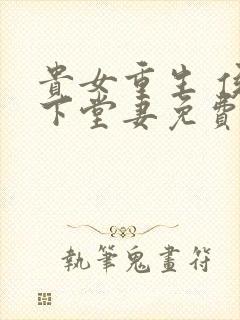 貴女重生
下堂妻免費
執筆鬼畫符